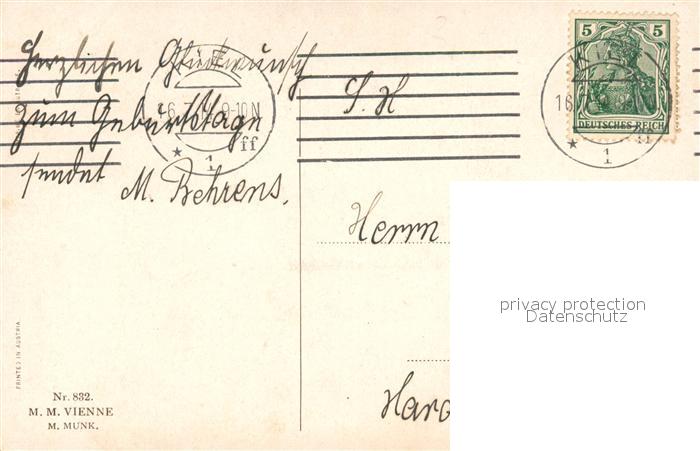 Herzlichen Glückwunsch
zum Geburtstage
sendet
M. Behrens.
S. H
Herrn
5 5
DEUTSCHES REICH
9-10 N
★ 1 ff
16
★ 1
privacy protection
Datenschutz
PRINTED IN AUSTRIA
Nr. 832.
M. M. VIENNE
M. MUNK.